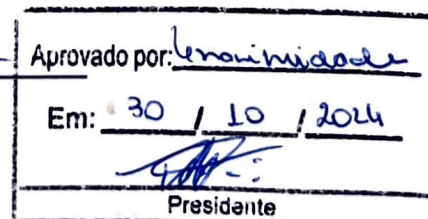 Aprovado por: Unanimidade
Em: 30 / 10 / 2024
Presidente